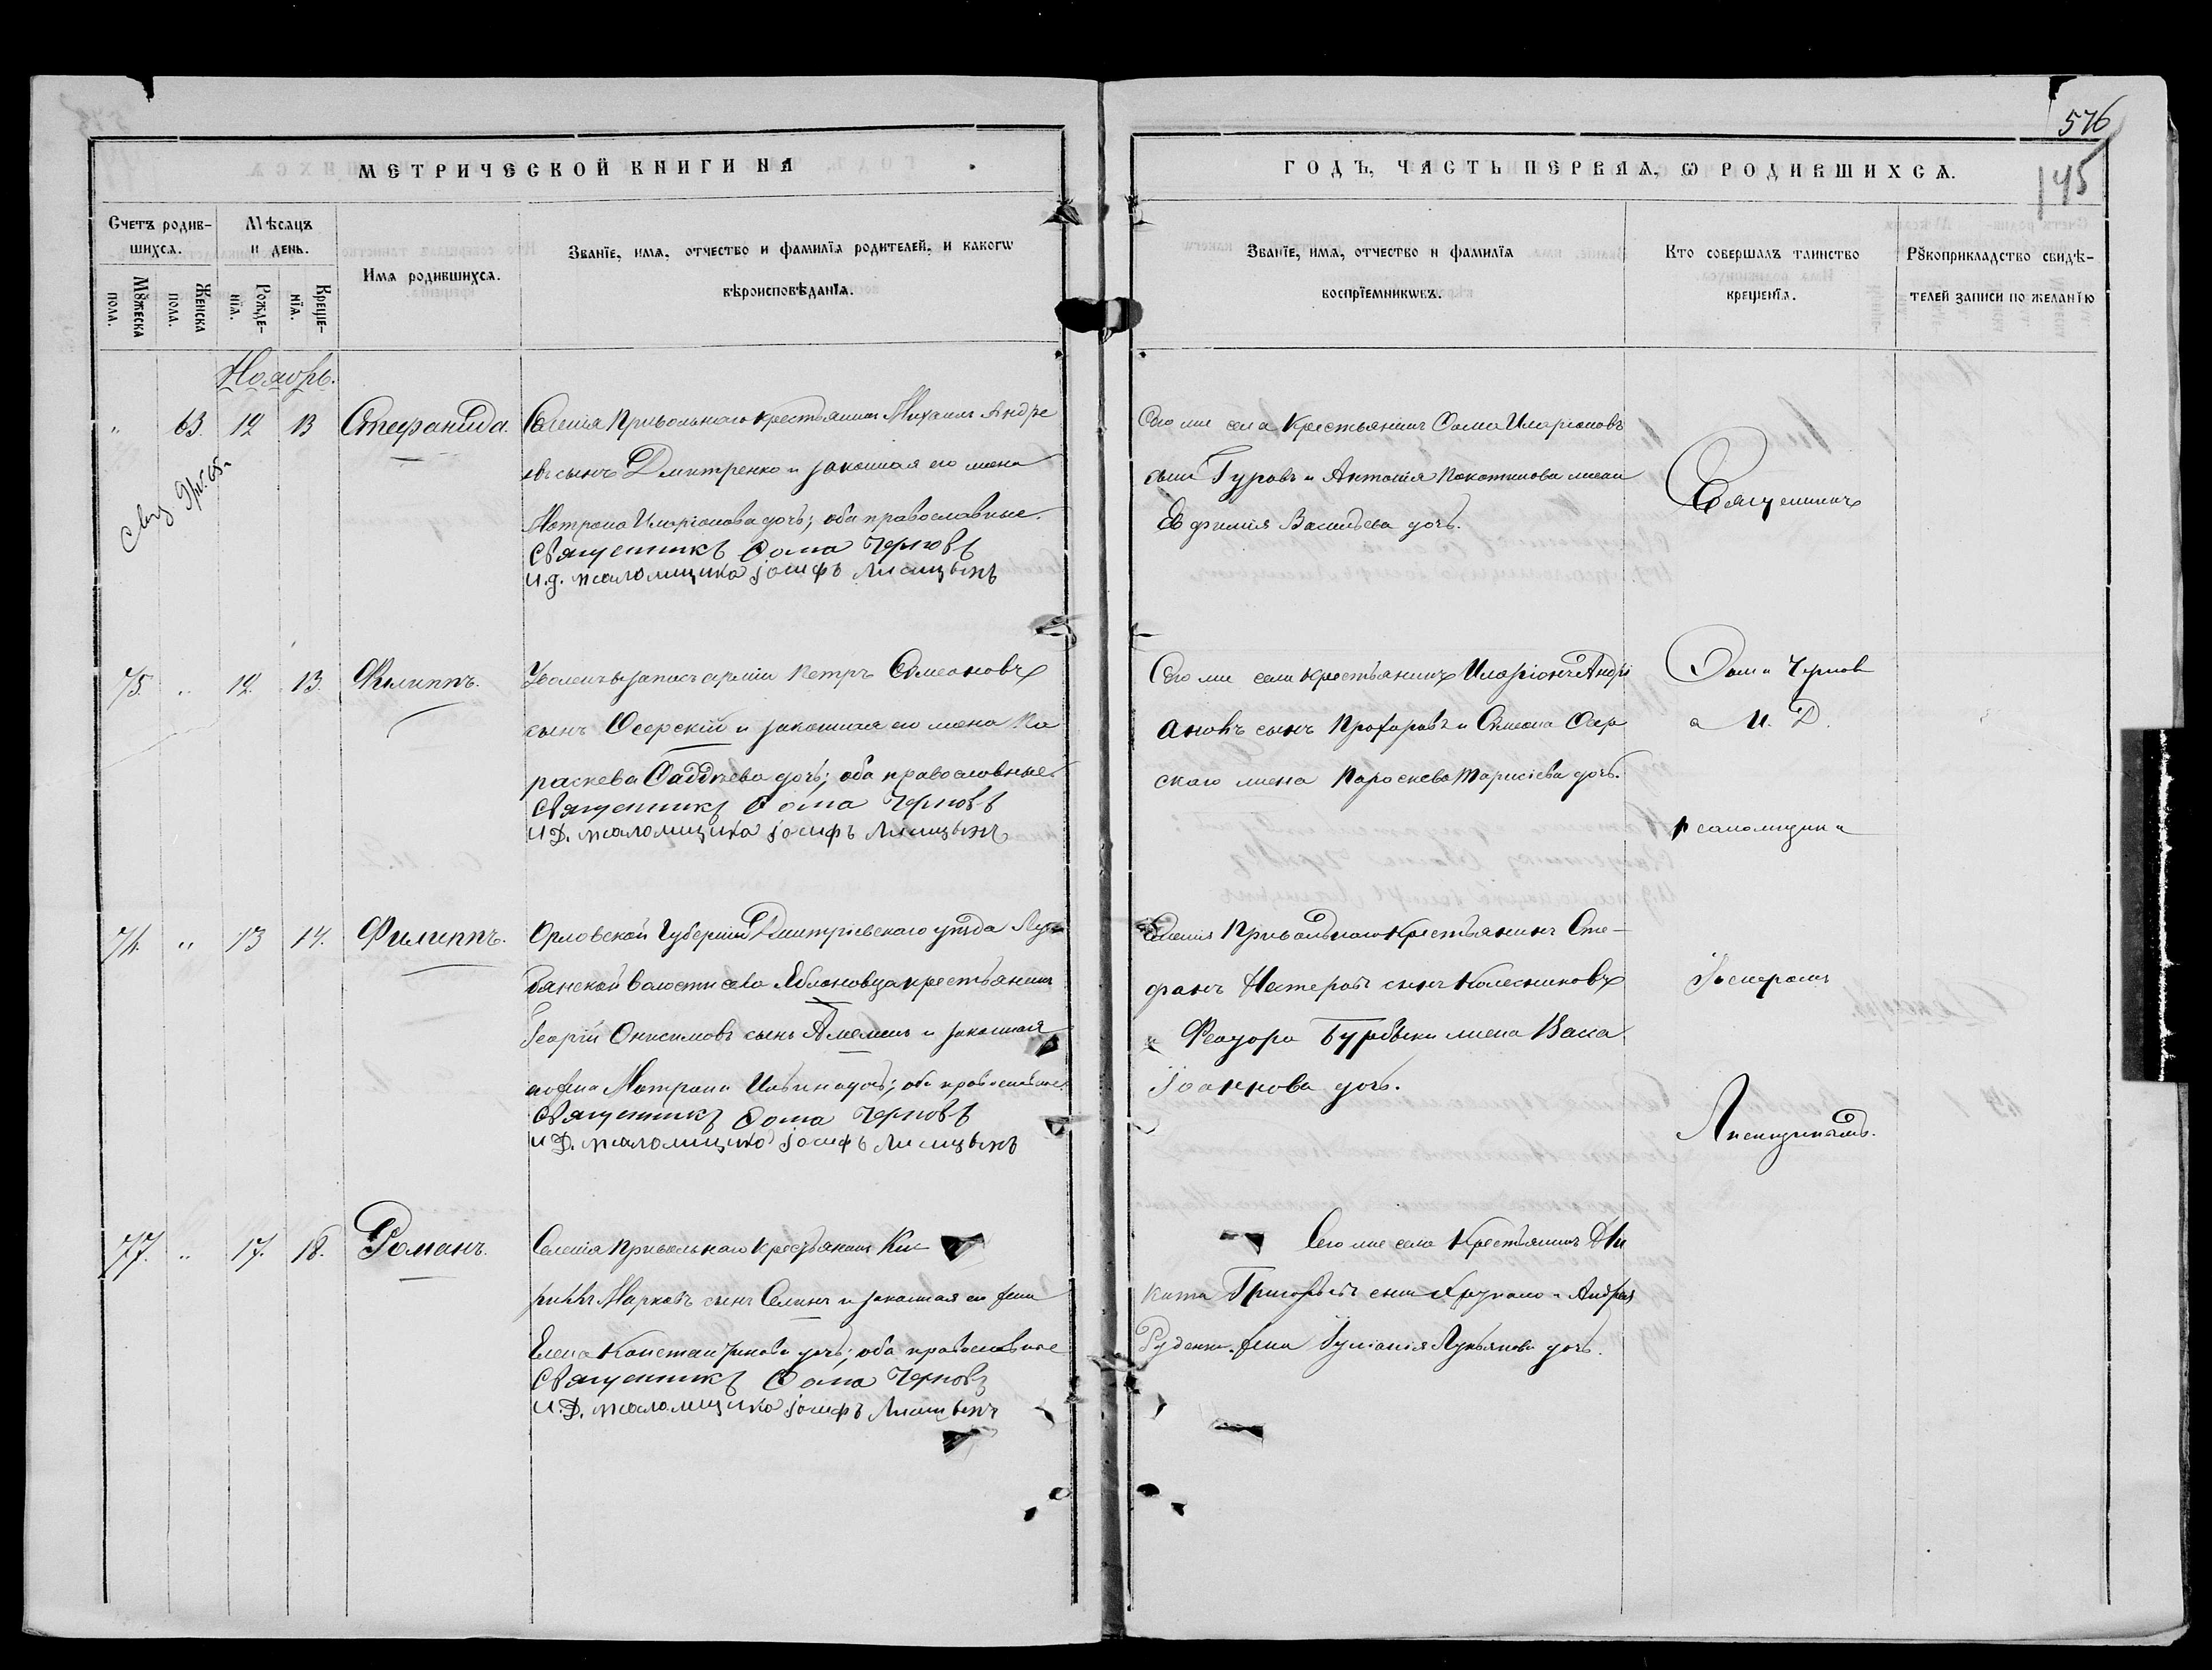 576
145
МЕТРИЧЕСКОЙ КНИГИ НА
ГОДЪ, ЧАСТЬ ПЕРВАЯ, Ѡ РОДИВШИХСѦ.
Счетъ родив-
шихсѧ.
Мꙋжеска
пола.
Женска
пола.
Мѣсѧцъ
и день.
Рожде-
нїѧ.
Креще-
нїѧ.
Имѧ родившихсѧ.
Званїе, имѧ, отчество и фамилїѧ родителей, и какогѡ
вѣроисповѣданїѧ.
Званїе, имѧ, отчество и фамилїѧ
воспрїемникѡвъ.
Кто совершалъ таинство
крещенїѧ.
Рꙋкоприкладство свидѣ-
телей записи по желанїю
Ноябрь.
" 63. 12 13 Стефанида.
Селенія Привольнаго крестьянинъ Михаилъ Андре
евъ сынъ Дмитренко и законная его жена
Матрона Иларіонова дочь; оба православные.
Священникъ Ѳома Черновъ
И.д. псаломщика Іосифъ Лисицынъ
Сего же села крестьянинъ Ѳома Иларіоновъ
сынъ Гуровъ и Антонія жена
Евфимія Васильева дочь.
Священникъ
75. " 12. 13. Филиппъ.
запасъ арміи Петръ Симеоновъ
сынъ Озерскій и законная его жена Па
раскева дочь; оба православные
Священникъ Ѳома Черновъ
И.Д. псаломщика Іосифъ Лисицынъ
Сего же села крестьянинъ Иларіонъ Андрі
ановъ сынъ Прохоровъ и Симеона Озер
скаго жена Параскева дочь.
Ѳома Черновъ
а И. Д.
псаломщика
76. " 13 14. Филиппъ.
Орловской Губерніи Дмитріевскаго уѣзда
волости села крестьянинъ
Георгій Онисимовъ сынъ и законная
его жена Матрона Ильина дочь; оба православные
Священникъ Ѳома Черновъ
И.Д. псаломщика Іосифъ Лисицынъ
Селенія Привольнаго крестьянинъ Сте-
фанъ Нестеровъ сынъ Колесниковъ
и Ѳеодора жена Васса
Іоаннова дочь.
Іосифомъ
Лисицынымъ.
77. " 17. 18. Романъ.
Селенія Привольнаго крестьянинъ Ки
риллъ Марковъ сынъ Селинъ и законная его жена
Елена Константинова дочь; оба православные
Священникъ Ѳома Черновъ
И.Д. псаломщика Іосифъ Лисицынъ
Сего же села крестьянинъ Ни
кита Григорьевъ сынъ и Андрея
Руденка жена Іуліанія Лукьянова дочь.